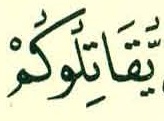 يُّقَاتِلُوكُمْ